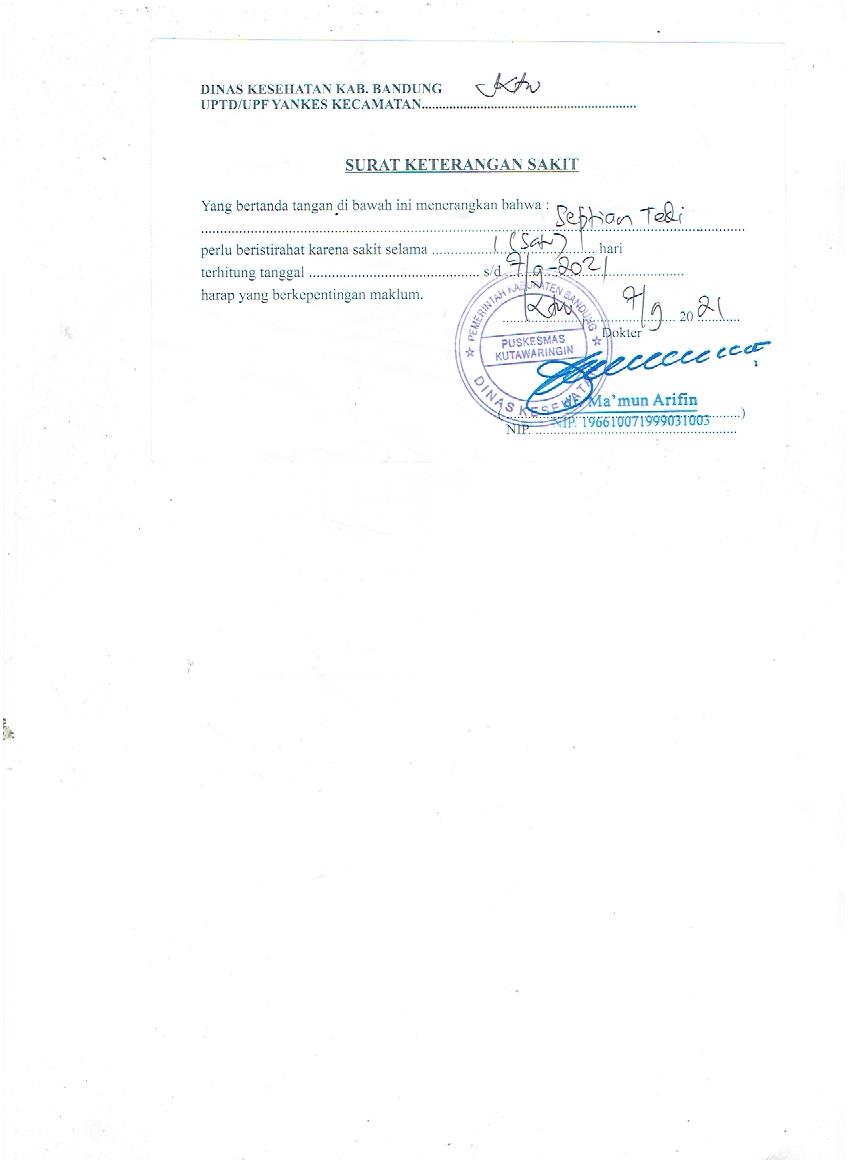 DINAS KESEHATAN KAB. BANDUNG
UPTD/UPF YANKES KECAMATAN........................ Ktw
SURAT KETERANGAN SAKIT
Yang bertanda tangan di bawah ini menerangkan bahwa :
Septian Tedi
perlu beristirahat karena sakit selama ........ 1 (Satu) ........ hari
terhitung tanggal ........ s/d 7/9-2021 ........
harap yang berkepentingan maklum.
Ktw 7/9 20 21
Dokter
PEMERINTAH KABUPATEN BANDUNG
PUSKESMAS
KUTAWARINGIN
DINAS KESEHATAN
dr. Ma'mun Arifin
NIP. 196610071999031003
NIP. ........